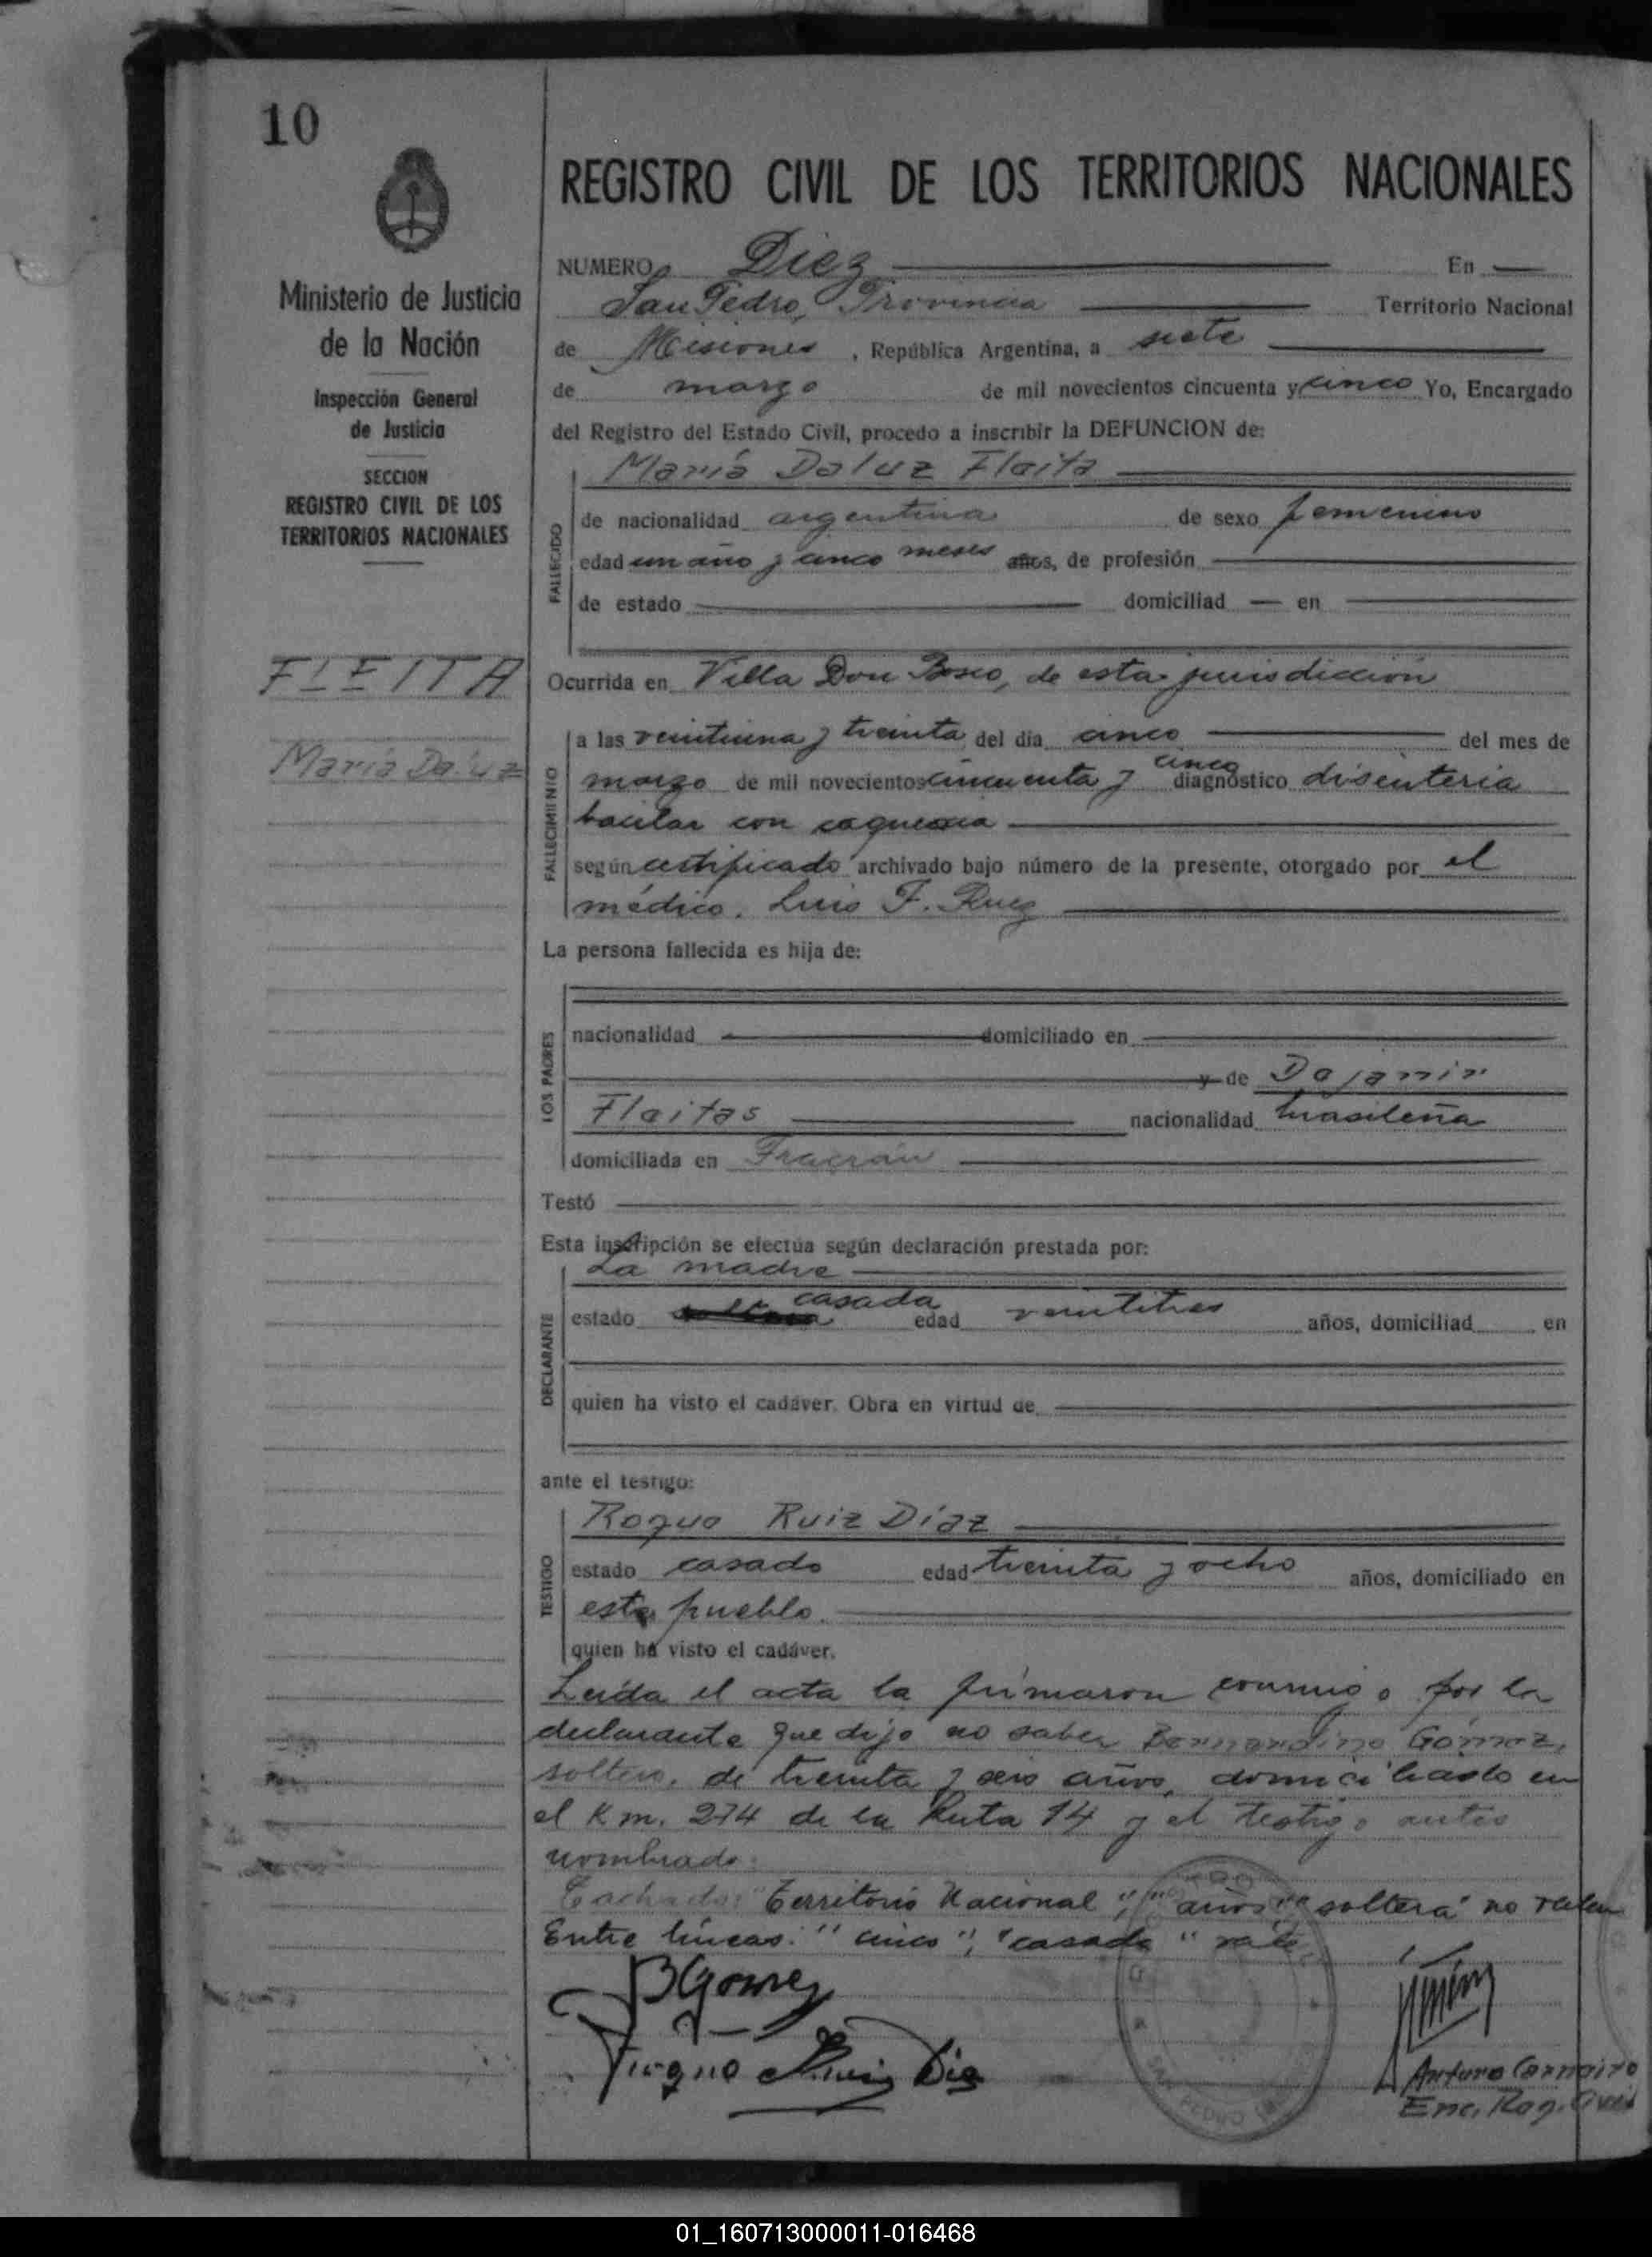 10
REGISTRO CIVIL DE LOS TERRITORIOS NACIONALES
Ministerio de Justicia
de la Nación
Inspección General
de Justicia
SECCION
REGISTRO CIVIL DE LOS
TERRITORIOS NACIONALES
FLEITA
María Daluz
NUMERO Diez En
San Pedro, Provincia Territorio Nacional
de Misiones, República Argentina, a siete
de marzo de mil novecientos cincuenta y cinco Yo, Encargado
del Registro del Estado Civil, procedo a inscribir la DEFUNCION de:
María Daluz Fleita
FALLECIDO
de nacionalidad argentina de sexo femenino
edad un año y cinco meses años, de profesión
de estado domiciliad en
Ocurrida en Villa Don Bosco, de esta jurisdicción
FALLECIMIENTO
a las veintiuna y treinta del día cinco del mes de
marzo de mil novecientos cincuenta y cinco diagnóstico disenteria
bacilar con caquexia
según certificado archivado bajo número de la presente, otorgado por el
médico, Luis F. Ruez
La persona fallecida es hija de:
LOS PADRES
nacionalidad domiciliado en
y de Dejanir
Fleitas nacionalidad brasileña
domiciliada en Fracrán
Testó
Esta inscripción se efectúa según declaración prestada por:
La madre
DECLARANTE
estado soltera casada edad veintitres años, domiciliad en
quien ha visto el cadáver. Obra en virtud de
ante el testigo:
Roque Ruiz Díaz
TESTIGO
estado casado edad treinta y ocho años, domiciliado en
este pueblo.
quien ha visto el cadáver.
Leída el acta la firmaron conmigo por la
declarante que dijo no saber Bernardino Gómez,
soltero, de treinta y seis años, domiciliado en
el Km. 274 de la Ruta 14 y el testigo antes
nombrado.
Tachado: "Territorio Nacional", "años" "soltera" no valen
Entre líneas: "cinco", "casada" vale.
BGomez
Roque Ruiz Diaz
SAN PEDRO
Arturo Carneiro
Enc. Reg. Civil
01_160713000011-016468